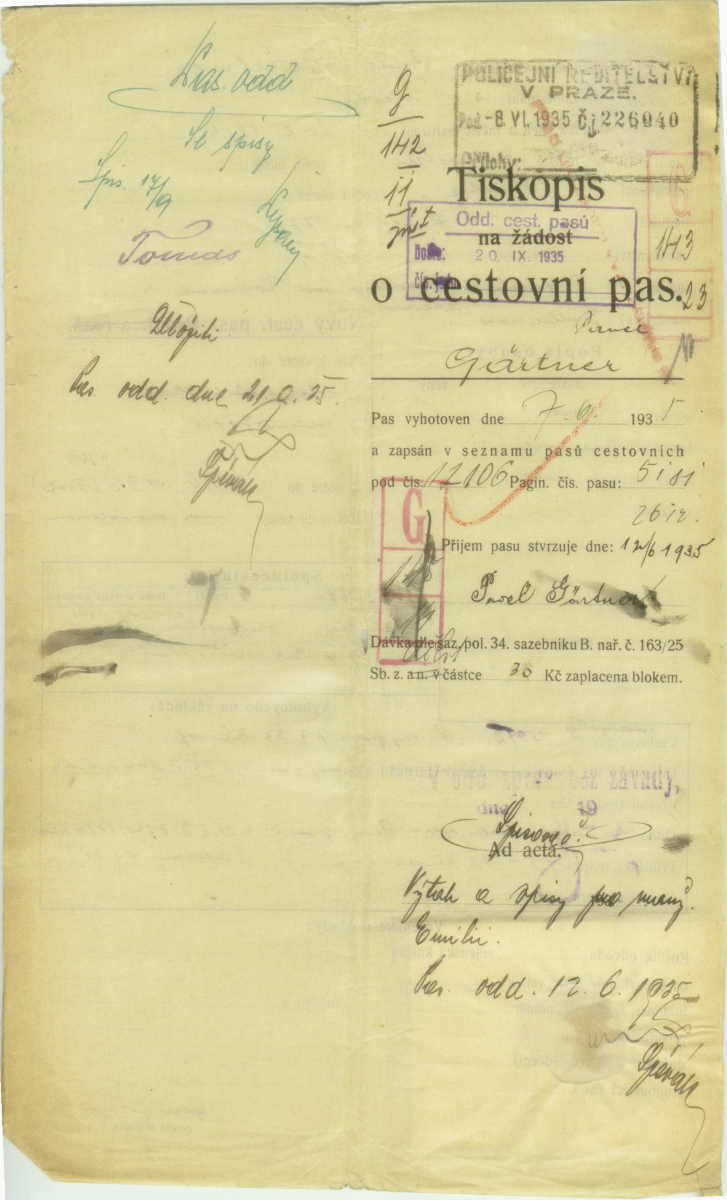 Pas. odd
St spisy
Spis. 17/9
Tomas
Pas odd. dne 21.9.35.
Špévák
9
142
11
POLICEJNÍ ŘEDITELSTVÍ
V PRAZE.
Pod. -8. VI. 1935 Čj. 226040
Přílohy:
Tiskopis
Odd. cest. pasů
na žádost
Došlo: 20. IX. 1935
čís. jedn.
o cestovní pas.
G
143
23
Pavel
Gärtner
Pas vyhotoven dne 7. 6. 1935.
a zapsán v seznamu pasů cestovních
pod čís. 12106 Pagin. čís. pasu: 5151
G
Příjem pasu stvrzuje dne: 12/6 1935
Pavel Gärtner
Dávka dle saz. pol. 34. sazebníku B. nař. č. 163/25
Sb. z. a n. v částce 30 Kč zaplacena blokem.
dne 19
Spisovna.
Ad acta.
Výtah a spisy pro
Emilii.
Pas. odd. 12. 6. 1935
Špévák